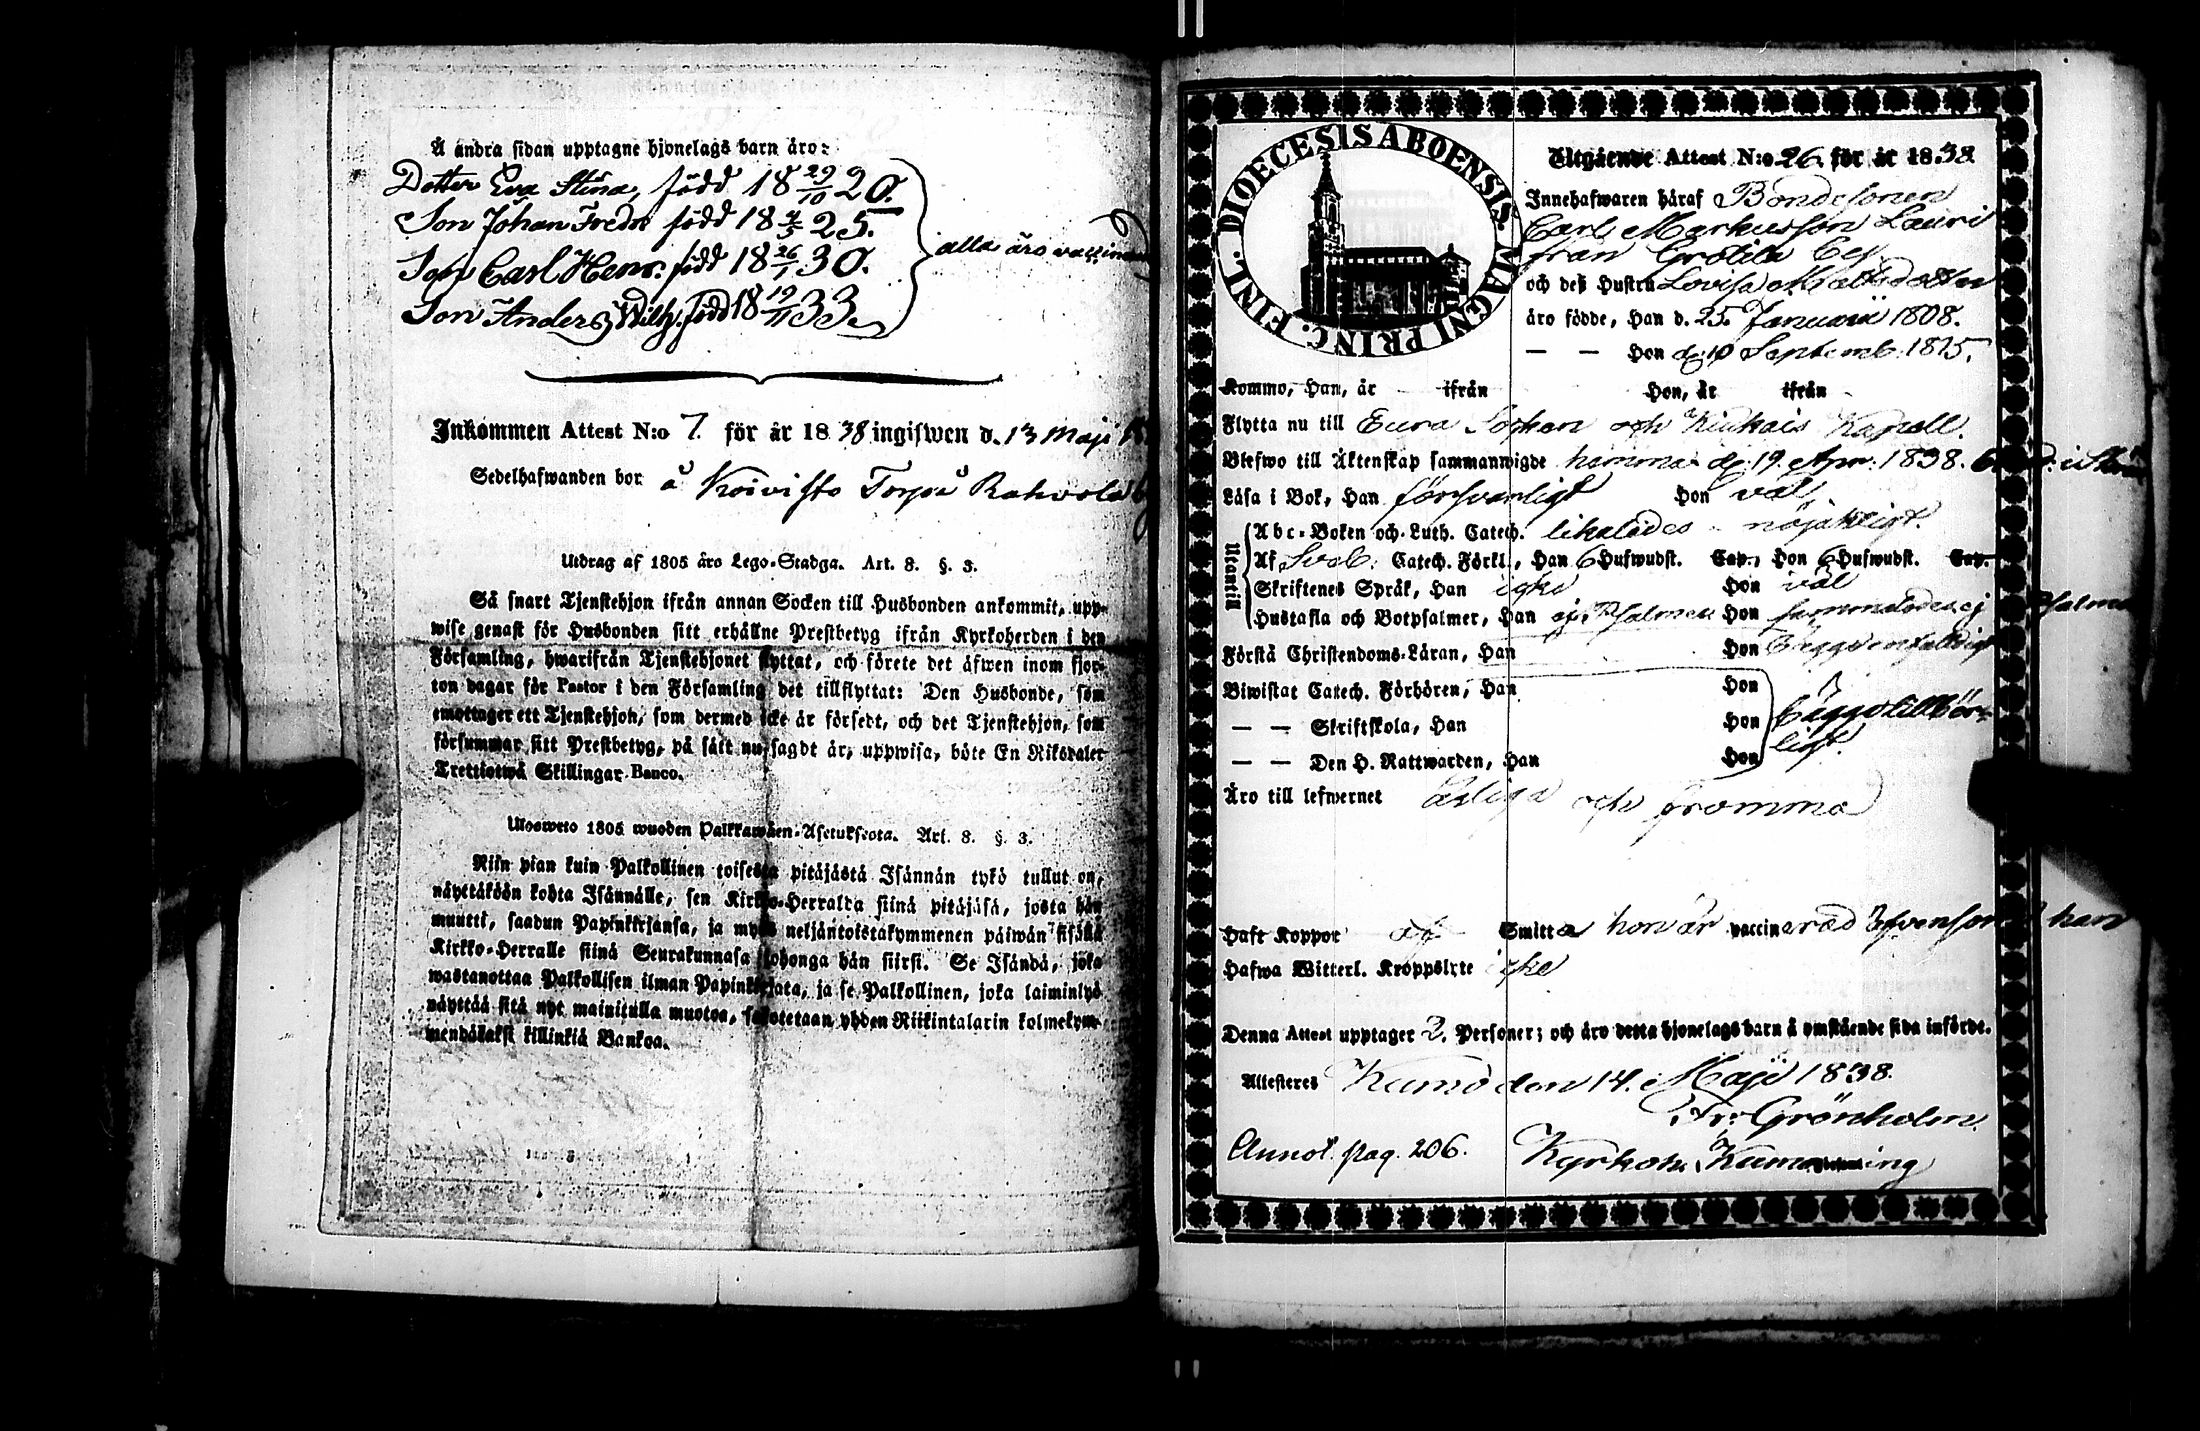 Å andra sidan upptagne hjonelags barn äro:
Dotter Eva Stina, född 18 29/10 20.
Son Johan Fredr född 18 4/5 25.
Son Carl Henr. född 18 26/1 30.
alla äro vaccinerad
Son Anders Wilh. född 18 19/11 33.
Inkommen Attest N:o 7. för år 1838 ingifwen d. 13 Maji
Sedelhafwanden bor å Koivisto Torp å
Utdrag af 1805 års Lego-Stadga. Art. 8. §. 3.
Så snart Tjenstehjon ifrån annan Socken till Husbonden ankommit, upp-
wise genast för Husbonden sitt erhållne Prestbetyg ifrån Kyrkoherden i den
Församling, hwarifrån Tjenstehjonet flyttat, och förete det äfwen inom fjor-
ton dagar för Pastor i den Församling det tillflyttat: Den Husbonde, som
emottager ett Tjenstehjon, som dermed icke är försedt, och det Tjenstehjon, som
försummar sitt Prestbetyg, på sätt nu sagdt är, uppwisa, böte En Riksdaler
Trettiotwå Skillingar Banco.
Ulosweto 1805 wuoden Palkkawäen-Asetuksesta. Art. 8. §. 3.
Niin pian kuin Palkollinen toisesta pitäjästä Isännän tykö tullut on,
näyttäköön kohta Isännälle, sen Kirkko-Herralda siinä pitäjäsä, josta hän
muutti, saadun Papinkirjansa, ja myös neljäntoistakymmenen päiwän sisällä
Kirkko-Herralle siinä Seurakunnasa johonga hän siirsi. Se Isändä, joka
wastanottaa Palkollisen ilman Papinkirjata, ja se Palkollinen, joka laiminlyö
näyttää sitä nyt mainitulla muotoa, sakotetaan yhden Riikintalarin kolmekym-
mendäkaksi killinkiä Bankoa.
DIOECESIS ABOENSIS. MAGNI PRINC. FINL.
Utgående Attest N:o 26. för år 1838.
Innehafwaren häraf Bondesonen
Carl Markusson Lauri
från
och deß Hustru Lovisa Mattsdotter
äro födde, Han d. 25. Januarii 1808.
— — Hon d. 10 Septemb. 1815.
Kommo, Han, år ifrån Hon, år ifrån
Flytta nu till Eura Socken och Kiukais Kapell.
Blefwo till Äktenskap sammanwigde hemma d. 19. Apr. 1838.
Läsa i Bok, Han försvarligt Hon väl,
Utantill
Abc-Boken och Luth. Catech. likaledes - nöjaktigt.
Af Sveb. Catech. Förkl., Han 6 Hufwudst. Cap., Hon 6 Hufwudst. Cap.
Skriftenes Språk, Han icke Hon väl
Hustafla och Botpsalmer, Han ej Psalmer Hon sammaledes ej Psalmer
Förstå Christendoms-Läran, Han Hon Bägge enfaldigt
Biwistat Catech. Förhören, Han Hon
— — Skriftskola, Han Hon Bägge tillbör-
ligt.
— — Den H. Nattwarden, Han Hon
Äro till lefwernet ärliga och fromma
Haft Koppor af Smitta hon är vaccinerad äfvensom han
Hafwa Witterl. Kroppslyte icke
Denna Attest upptager 2. Personer; och äro detta hjonelags barn å omstående sida införde.
Attesteres Kumo den 14. Maji 1838.
Fr: Grönholm.
Annot. pag. 206.
Kyrkoh.